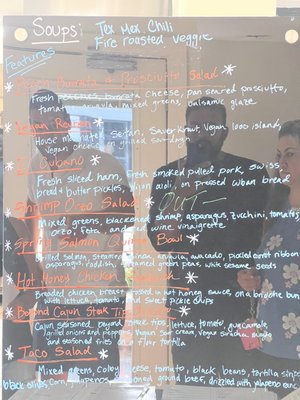 Soups: Tex Mex Chili
Fire roasted veggie
Features
Peach Burrata & Prosciutto Salad
Fresh peaches, burrata cheese, pan seared prosciutto,
tomato, arugula, mixed greens, balsamic glaze
Vegan Reuben
House made Seitan, Sauer Kraut, vegan 1000 island,
vegan cheese on grilled sourdough
El Cubano
Fresh sliced ham, Fresh smoked pulled pork, swiss
bread + butter pickles, aioli, on pressed cuban bread
Shrimp Orzo Salad OUT
Mixed greens, blackened shrimp, asparagus, zucchini, tomato,
orzo, feta, and wine vinaigrette
Spring Salmon Quinoa Bowl
Grilled salmon, steamed quinoa, arugula, avocado, pickled carrot ribbon
asparagus, radish, green beans, sesame seeds
Hot Honey Chicken
Breaded chicken breast tossed in hot honey sauce, on a brioche bun
with lettuce, tomato, and sweet pickle chips
Beyond Cajun Steak Tip
Cajun seasoned beyond steak tips, lettuce, tomato, guacamole
grilled onions and peppers, vegan sour cream, vegan sriracha
and seasoned fries on a flour tortilla
Taco Salad
Mixed greens, colby cheese, tomato, black beans, tortilla strips
black olives, corn, jalapenos, seasoned ground beef, drizzled with jalapeno ranch